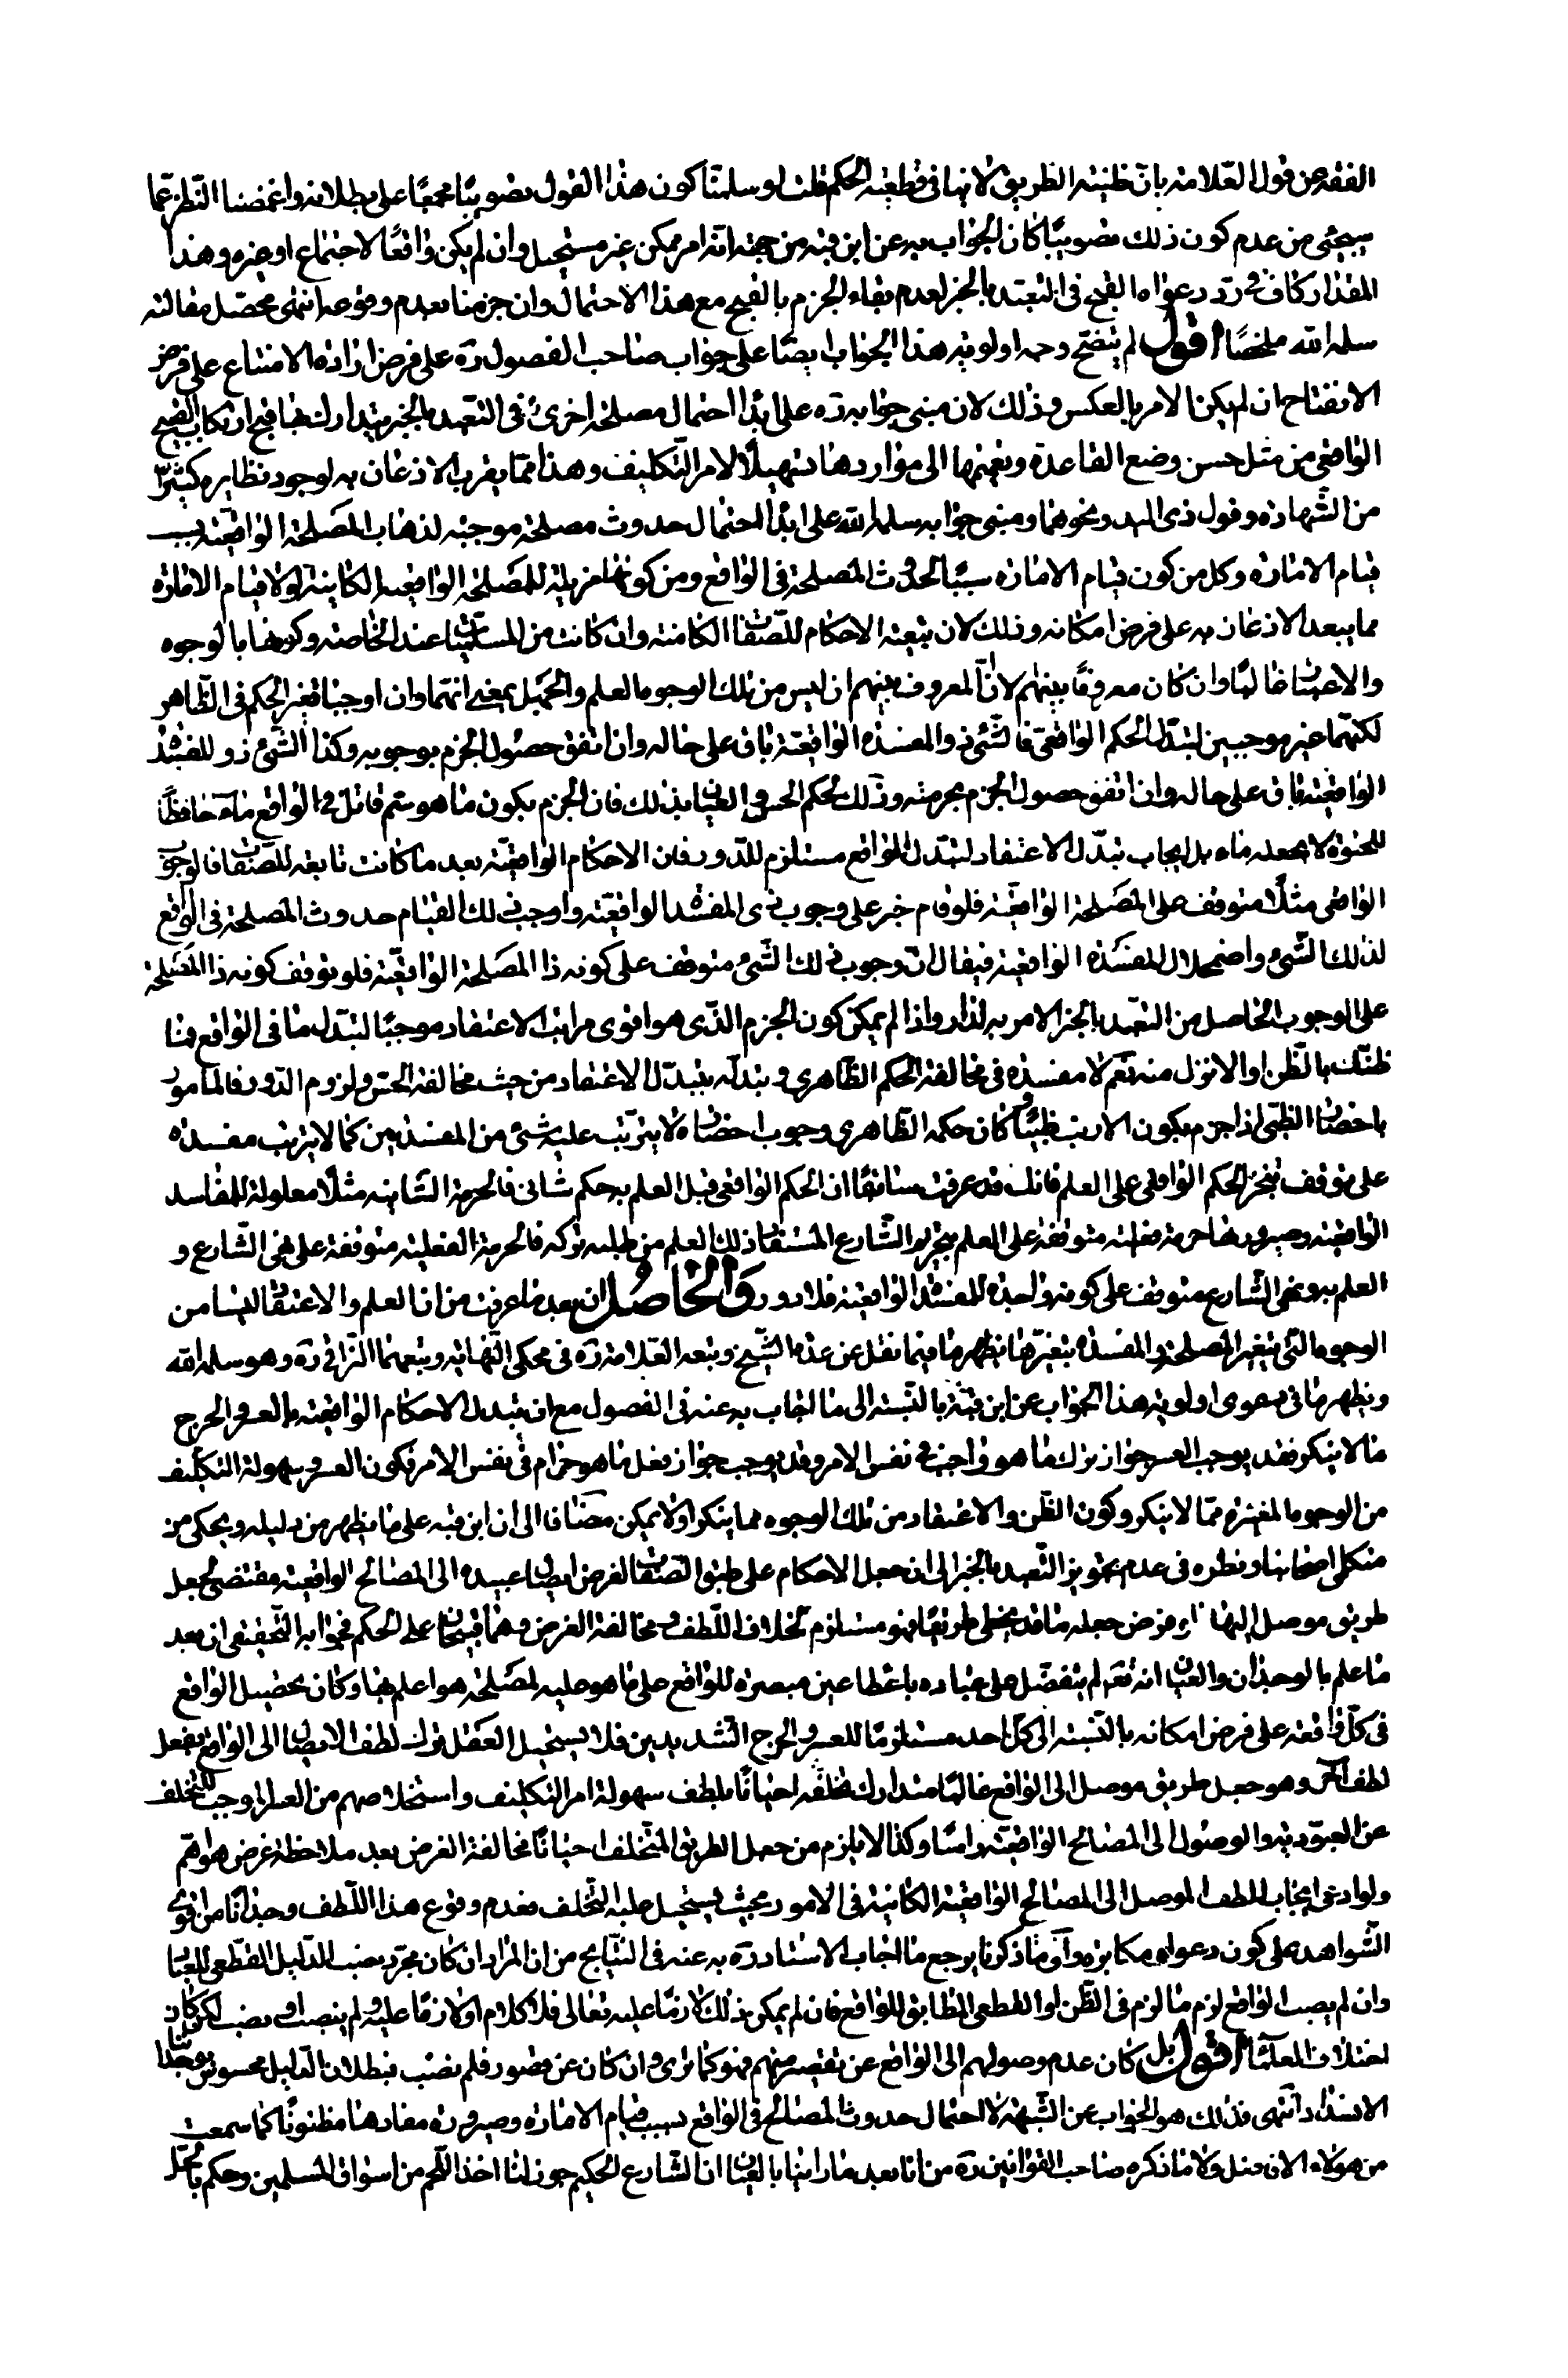 الفقه من قول العلامة بان ظنية الطريق لا ينافى قطعية الحكم قلت لو سلمنا كون هذا القول تصويبا مجمعا على بطلانه واغمضنا النظر عما
سيجئ من عدم كون ذلك تصويبا كان الجواب به عن ابن قبه من جهة انه امر ممكن غير مستحيل وان لم يكن واقعا لاجماع او غيره وهذا
المقدار كاف فى رد دعواه القبح فى التعبد بالخبر لعدم بقاء الجزم بالقبح مع هذا الاحتمال وان جزمنا بعدم وقوعه انتهى محصل مقالته
سلمه الله ملخصا اقول لم يتضح وجه اولوية هذا الجواب ايضا على جواب صاحب الفصول ره على فرض ارادة الامتناع على فرض
الانفتاح ان لم يكن الامر بالعكس وذلك لان مبنى جوابه ره على ابداء احتمال مصلحة اخرى فى التعبد بالخبر يتدارك بها قبح ارتكاب القبيح
الواقعى من مثل حسن وضع القاعدة وتعميمها الى مواردها تسهيلا لامر التكليف وهذا مما يقرب الاذعان به لوجود نظايره كثيرا
من الشهادة وقول ذى اليد ونحوهما ومبنى جوابه سلمه الله على ابداء احتمال حدوث مصلحة موجبة لذهاب المصلحة الواقعية بسبب
قيام الامارة وكل من كون قيام الامارة سببا لحدوث المصلحة فى الواقع ومن كونها مزيلة للمصلحة الواقعية الكاينة لولا قيام الامارة
مما يبعد الاذعان به على فرض امكانه وذلك لان تبعية الاحكام للصفات الكامنة وان كانت من المسلمات عند الخاصة وكونها بالوجوه
والاعتبارات غالبا وان كان معروفا بينهم لان المعروف بينهم ان ليس من تلك الوجوه العلم والجهل بمعنى انهما وان اوجبا تغير الحكم فى الظاهر
لكنهما غير موجبين لتبدل الحكم الواقعى فالشئ ذو المفسدة الواقعية باق على حاله وان اتفق حصول الجزم بوجوبه وكذا الشئ ذو المفسدة
الواقعية باق على حاله وان اتفق حصول الجزم بحرمته وذلك لحكم الحس والعيان بذلك فان الجزم بكون ما هو سم قاتل فى الواقع ماء حافظا
للحيوة لا يجعله ماء بل ايجاب تبدل الاعتقاد لتبدل الواقع مستلزم للدور فان الاحكام الواقعية بعد ما كانت تابعة للصفات فالوجوب
الواقعى مثلا متوقف على المصلحة الواقعية فلو قام خبر على وجوب ذى المفسدة الواقعية واوجب ذلك القيام حدوث المصلحة فى الواقع
لذلك الشئ واضمحلال المفسدة الواقعية فيقال ان وجوب ذلك الشئ متوقف على كونه ذا المصلحة الواقعية فلو توقف كونه ذا المصلحة
على الوجوب الحاصل من التعبد بالخبر الامر به لدار واذا لم يمكن كون الجزم الذى هو اقوى مراتب الاعتقاد موجبا لتبدل ما فى الواقع فما
ظنك بالظن او الانزل منه نعم لا مفسدة فى مخالفة الحكم الظاهرى وتبدله بتبدل الاعتقاد من حيث مخالفة الحس ولزوم الدور فالمامور
باحضار الظبى اذا جزم بكون الارنب ظبيا كان حكمه الظاهرى وجوب احضاره لا يترتب عليه شئ من المفسدتين كما لا يترتب مفسدة
على توقف تنجز الحكم الواقعى على العلم فانك قد عرفت سابقا ان الحكم الواقعى قبل العلم به حكم شانى فالحرمة الشانية مثلا معلولة للمفاسد
الواقعية وصيرورتها حرمة فعلية متوقفة على العلم بتحريم الشارع المستفاد ذلك العلم من طلبه تركه فالحرمة الفعلية متوقفة على نهى الشارع و
العلم به ونهى الشارع متوقف على كونه واجدة للمفسدة الواقعية فلا دور والحاصل ان بعد ما عرفت من انا العلم والاعتقاد ليسا من
الوجوه التى يتغير المصلحة والمفسدة بتغيرها يظهر ما فيما نقل عن عدة الشيخ وتبعه العلامة ره فى محكى النهاية وتبعهما النراقى ره وهو سلمه الله
ويظهر ما فى دعوى اولوية هذا الجواب عن ابن قبة بالنسبة الى ما اجاب به عنه فى الفصول مع ان تبدل الاحكام الواقعية بالعسر والحرج
ما لا ينكر فقد يوجب العسر جواز ترك ما هو واجب فى نفس الامر وقد يوجب جواز فعل ما هو حرام فى نفس الامر فكون العسر وسهولة التكليف
من الوجوه المغيرة مما لا ينكر وكون الظن والاعتقاد من تلك الوجوه مما ينكر اولا يمكن مضافا الى ان ابن قبه على ما يظهر من دليله ويحكى من
متكلمى اصحابنا ونظره فى عدم تجويز التعبد بالخبر الى ان جعل الاحكام على طبق الصفات لغرض ايصال عبيده الى المصالح الواقعية مقتضى لجعل
طريق موصل اليها فرض جعله ما قد يخطى طريقا فهو مستلزم لخلاف اللطف ومخالفة الغرض وهما قبيحان على الحكم فجوابه التحقيقى ان بعد
ما علم بالوجدان والعيان انه تعم لم يتفضل على عباده باعطاء عين مبصرة للواقع على ما هو عليه لمصلحة هو اعلم بها وكان تحصيل الواقع
فى كل واقعة على فرض امكانه بالنسبة الى كل احد مستلزما للعسر والحرج الشديدين فلا يستحيل العقل ترك لطف الايصال الى الواقع بفعل
لطف اخر وهو جعل طريق موصل الى الواقع غالبا متدارك تخلفه احيانا بلطف سهولة امر التكليف واستخلاصهم من العسر الموجب للتخلف
عن العبودية والوصول الى المصالح الواقعية راسا وكذا لا يلزم من جعل الطريق المتخلف احيانا مخالفة الغرض بعد ملاحظة غرض هو اهم
ولو ادعى ايجاب اللطف الموصل الى المصالح الواقعية الكاينة فى الامور بحيث يستحيل عليه التخلف فعدم وقوع هذا اللطف وجدانا من اقوى
الشواهد على كون دعواه مكابرة والى ما ذكرنا يرجع ما اجاب الاستاد ره به عنه فى النتايج من ان المراد ان كان مجرد نصب الدليل القطعى للعباد
وان لم يصب الواقع لزم ما لزم فى الظن او القطعى المطابق للواقع فان لم يكن ذلك لازما عليه تعالى فلا كلام او لازما عليه ولم ينصب او نصب لكن كان
اختلاف العلماء اقول بل كان عدم وصولهم الى الواقع عن تقصير منهم فهو كما ترى وان كان عن قصور فلم نصب فبطلان الدليل محسوس
الانسداد انتهى فذلك هو الجواب عن الشبهة لا احتمال حدوث المصالح فى الواقع بسبب قيام الامارة وصيرورة مفادها مظنونا كما سمعت
من هؤلاء الافاضل ولا ما ذكره صاحب القوانين ره من انا بعد ما راينا بالعيان ان الشارع الحكيم جوز لنا اخذ اللحم من اسواق المسلمين وحكم بالحل